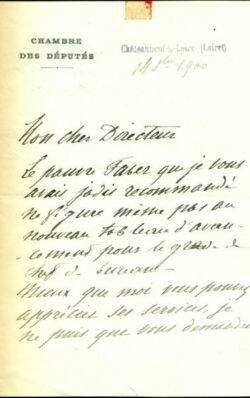 CHAMBRE
DES DÉPUTÉS
Châteauneuf-s-Loire (Loiret)
14 8bre 1900
Mon cher Directeur
Le pauvre Faber que je vous
avais jadis recommandé
ne figure même pas au
nouveau tableau d'avan-
cement pour le grade de
chef de bureau—
Mieux que moi vous pouvez
apprécier ses services, je
ne puis que vous demander